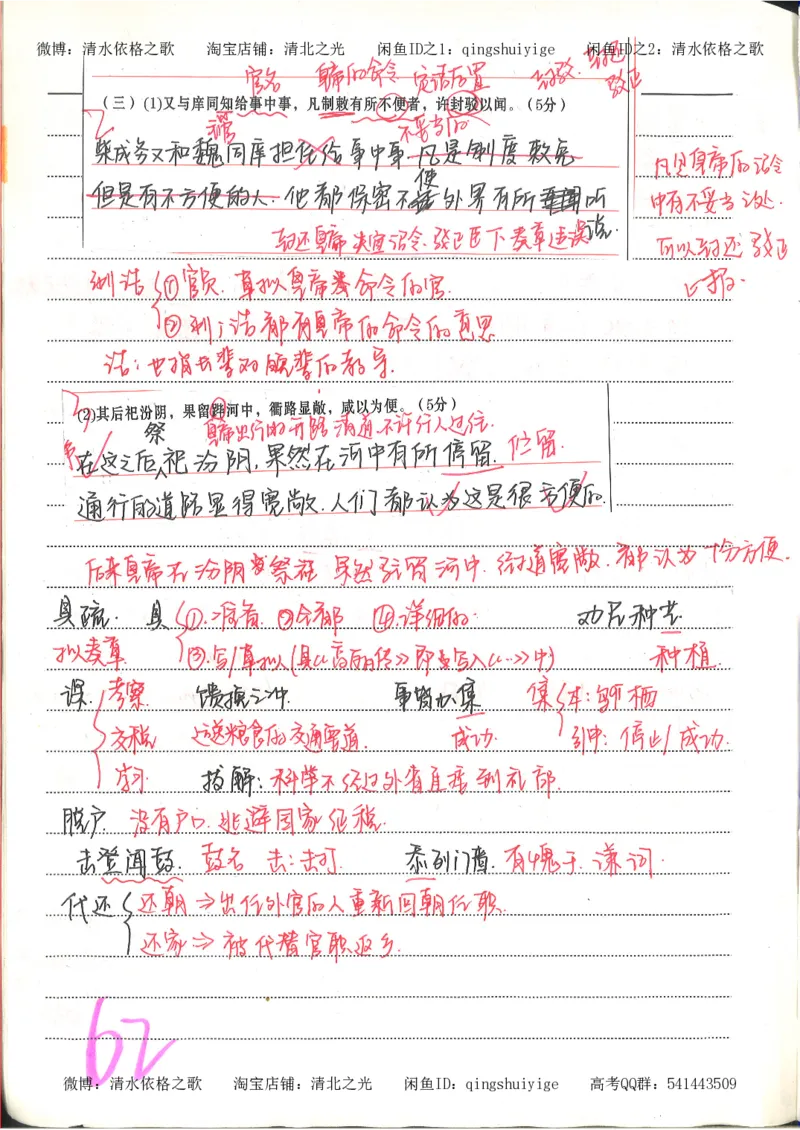 微博：清水依格之歌 淘宝店铺：清北之光 闲鱼ID之1：qingshuiyige 闲鱼ID之2：清水依格之歌
官名 皇帝的命令 定语后置 封驳
驳正
（三）(1)又与庠同知给事中事，凡制敕有所不便者，许封驳以闻。（5分）
不妥当的
柴成务又和魏同庠担任给事中事.凡是制度敕免
但是有不方便的人.他都保密不使外界有所听说.
凡是皇帝的诏令
中有不妥当之处.
可以封还驳正
上报.
封还皇帝失宜诏令.驳正臣下奏章违误
制诰 ①官员.草拟皇帝命令的官.
②制；诰都有皇帝的命令的意思
诰：也指长辈对晚辈的教导.
(2)其后祀汾阴，果留跸河中，衢路显敞，咸以为便。（5分）
祭 皇帝出行的开路清道，不许行人过往.
在这之后祀汾阴，果然在河中有所停留. 伫留.
通行的道路显得宽敞.人们都认为这是很方便的.
后来皇帝在汾阴祭祀 果然驻留河中.街道宽敞.都认为十分方便.
具疏. 具 ①.准备 ②全都 ④.详细的. 劝民种艺
拟奏草 ③.写/草拟（具《高的传》即写入《…》中） 种植
课. 考察 馈挽之冲 事皆办集 集 本：鸟栖
交税 运送粮食的交通要道. 成功. 引申：停止/成功.
学习 拔解：科举不经过外省直接到礼部.
脱户. 没有户口.逃避国家征税.
击登闻鼓. 鼓名 击：击打. 忝列门墙. 有愧于.谦词.
代还 还朝⇒出任外官的人重新回朝任职.
还家⇒被代替官职返乡.
62
微博：清水依格之歌 淘宝店铺：清北之光 闲鱼ID：qingshuiyige 高考QQ群：541443509